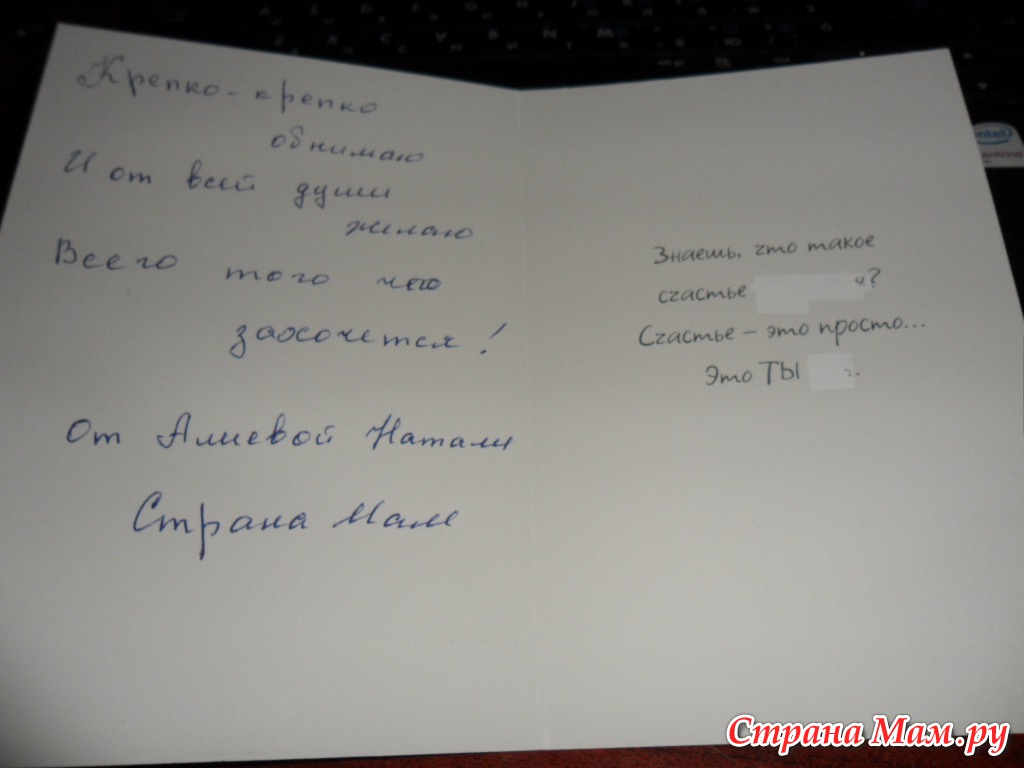 Крепко-крепко
обнимаю
И от всей души
желаю
Всего того чего
захочется!
От Алиевой Натали
Страна Мам
Знаешь, что такое
счастье ?
Счастье – это просто...
Это ТЫ .
intel
Страна Мам.ру